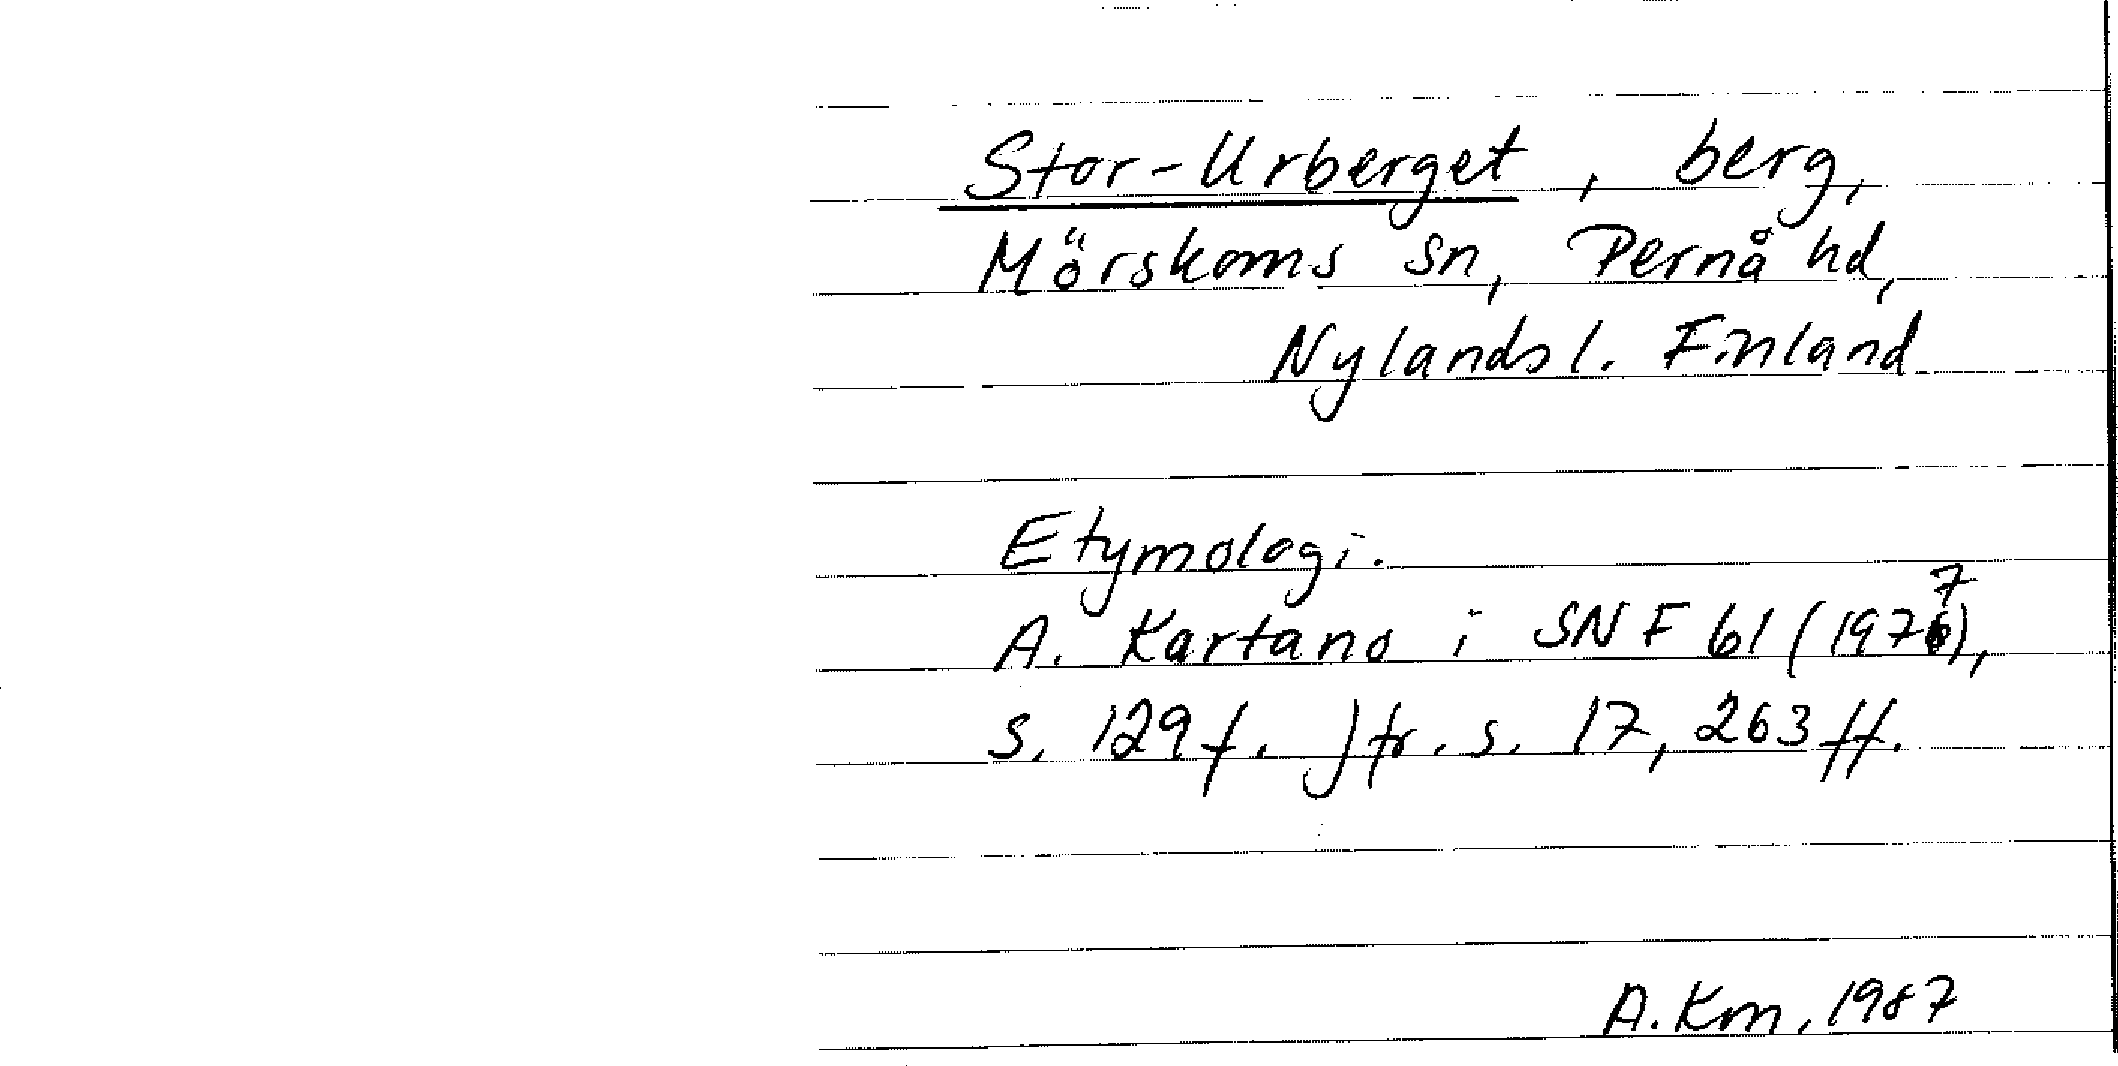 Stor-Urberget, berg,
Mörskoms sn, Pernå hd,
Nylands l. Finland
Etymologi.
A. Kartano i SNF 61 (1977),
s. 129 f. Jfr. s. 17, 263 ff.
A. Km, 1987